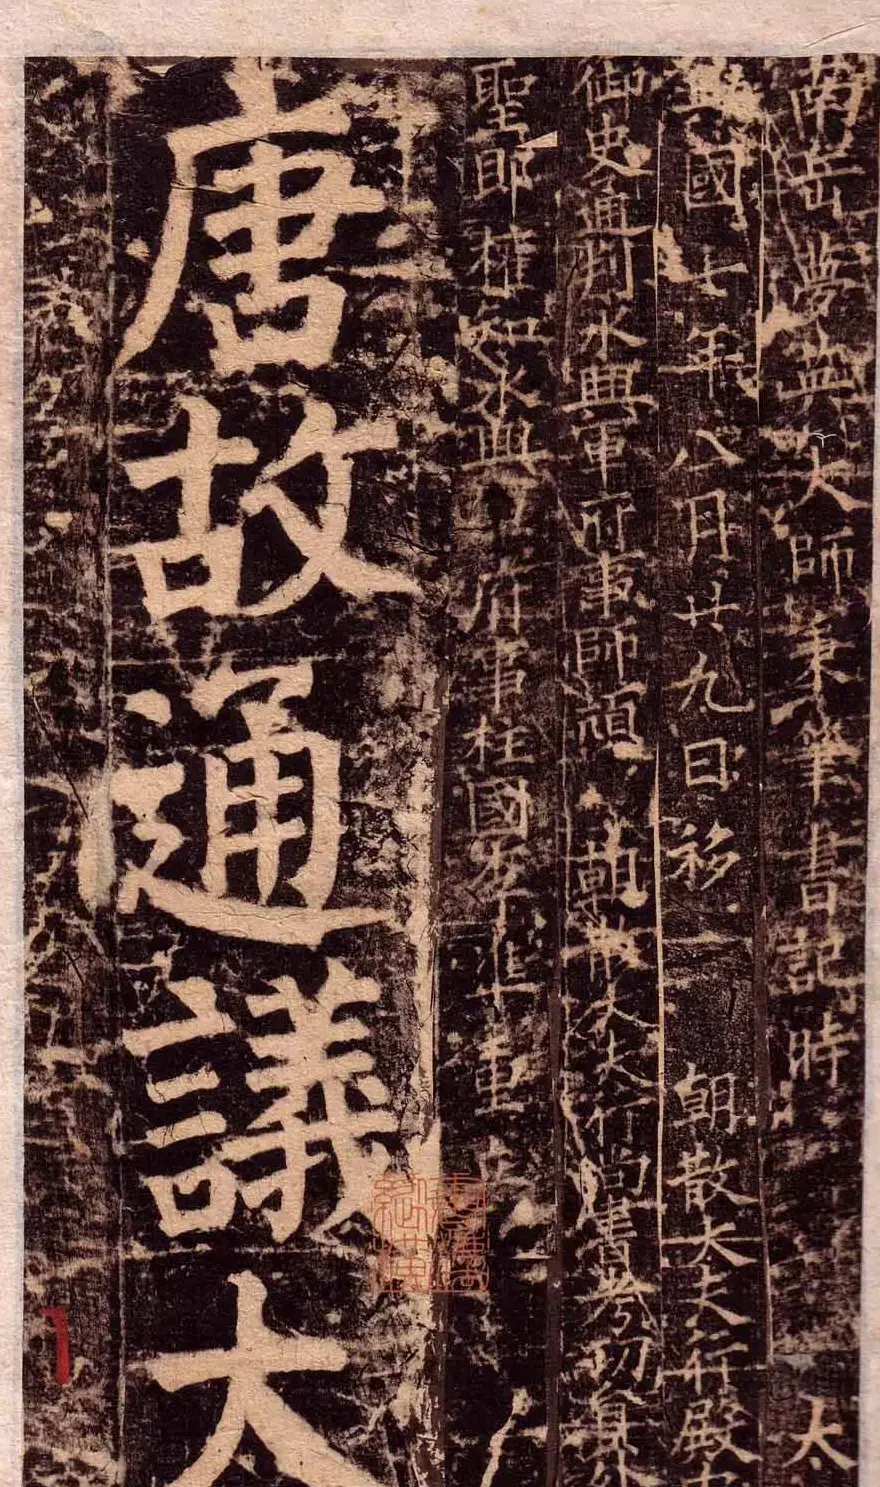 南岳夢英大師秉筆書記時 太
興國七年八月廿九日移 朝散大夫行殿中
御史通判永興軍府事師頏 朝散大夫行尚書考功員外
郎權知永興軍府事柱國李準重立
唐故通議大